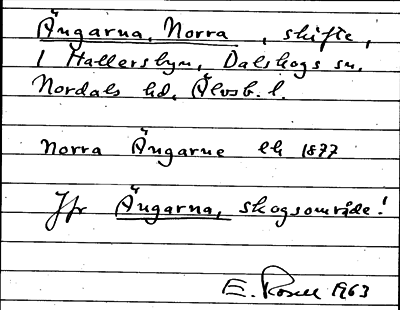 Ängarna, Norra, skifte,
i Hallersbyn, Dalskogs sn,
Nordals hd, Älvsb. l.
Norra Ängarne ek 1877
Jfr Ängarna, skogsområde!
E. Rosell 1963